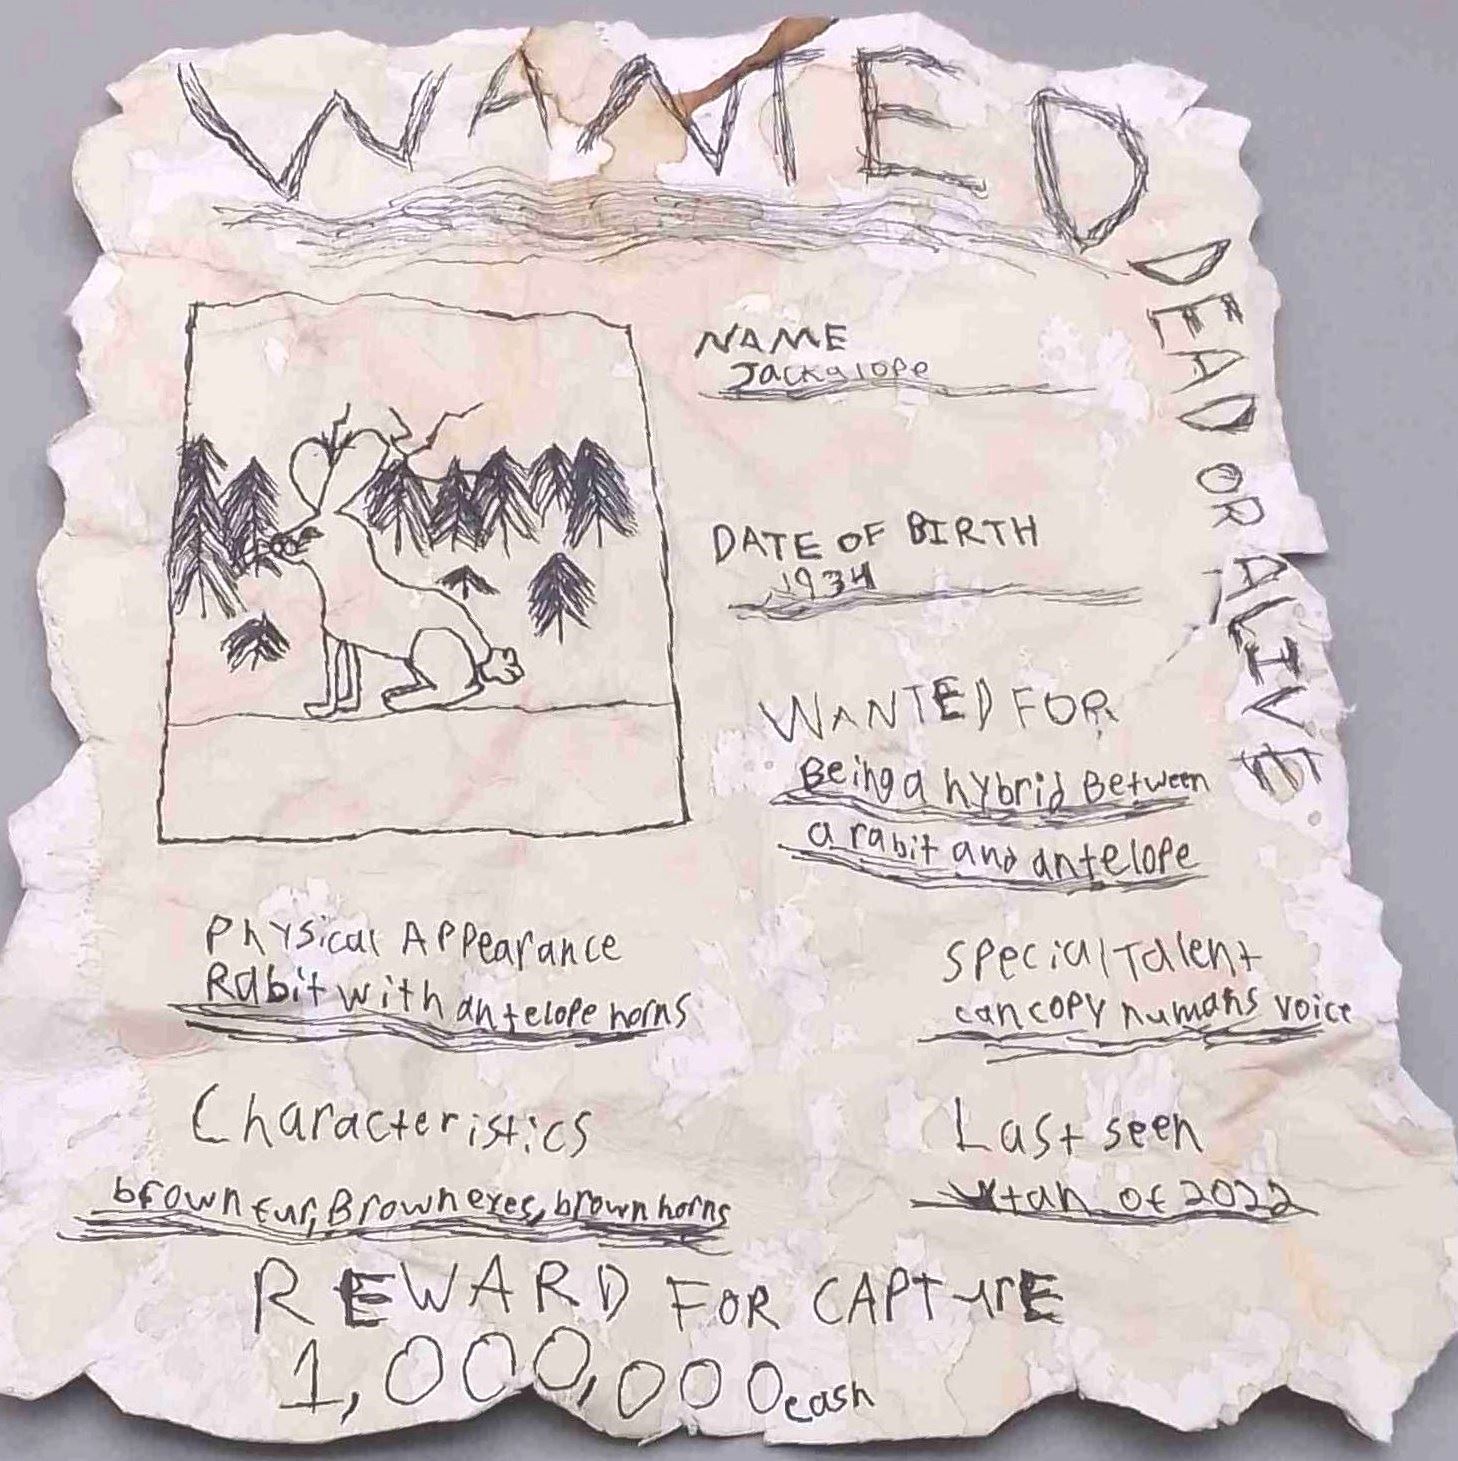 WANTED
DEAD OR ALIVE
NAME
Jackalope
DATE OF BIRTH
1934
WANTED FOR
Being a hybrid Between
a rabit and antelope
Physical Appearance
Rabit with antelope horns
Special Talent
can copy humans voice
Characteristics
brown fur, Brown eyes, brown horns
Last seen
of 2022
REWARD FOR CAPTURE
1,000,000 cash